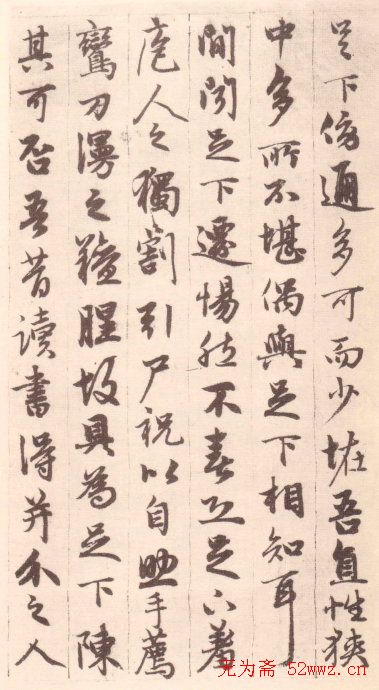 足下傍通多可而少怪吾直性狹
中多所不堪偶與足下相知耳
間聞足下遷惕然不喜恐足下羞
庖人之獨割引尸祝以自助手薦
鸞刀漫之羶腥故具為足下陳
其可否吾昔讀書得并介之人
无为斋 52wwz.cn